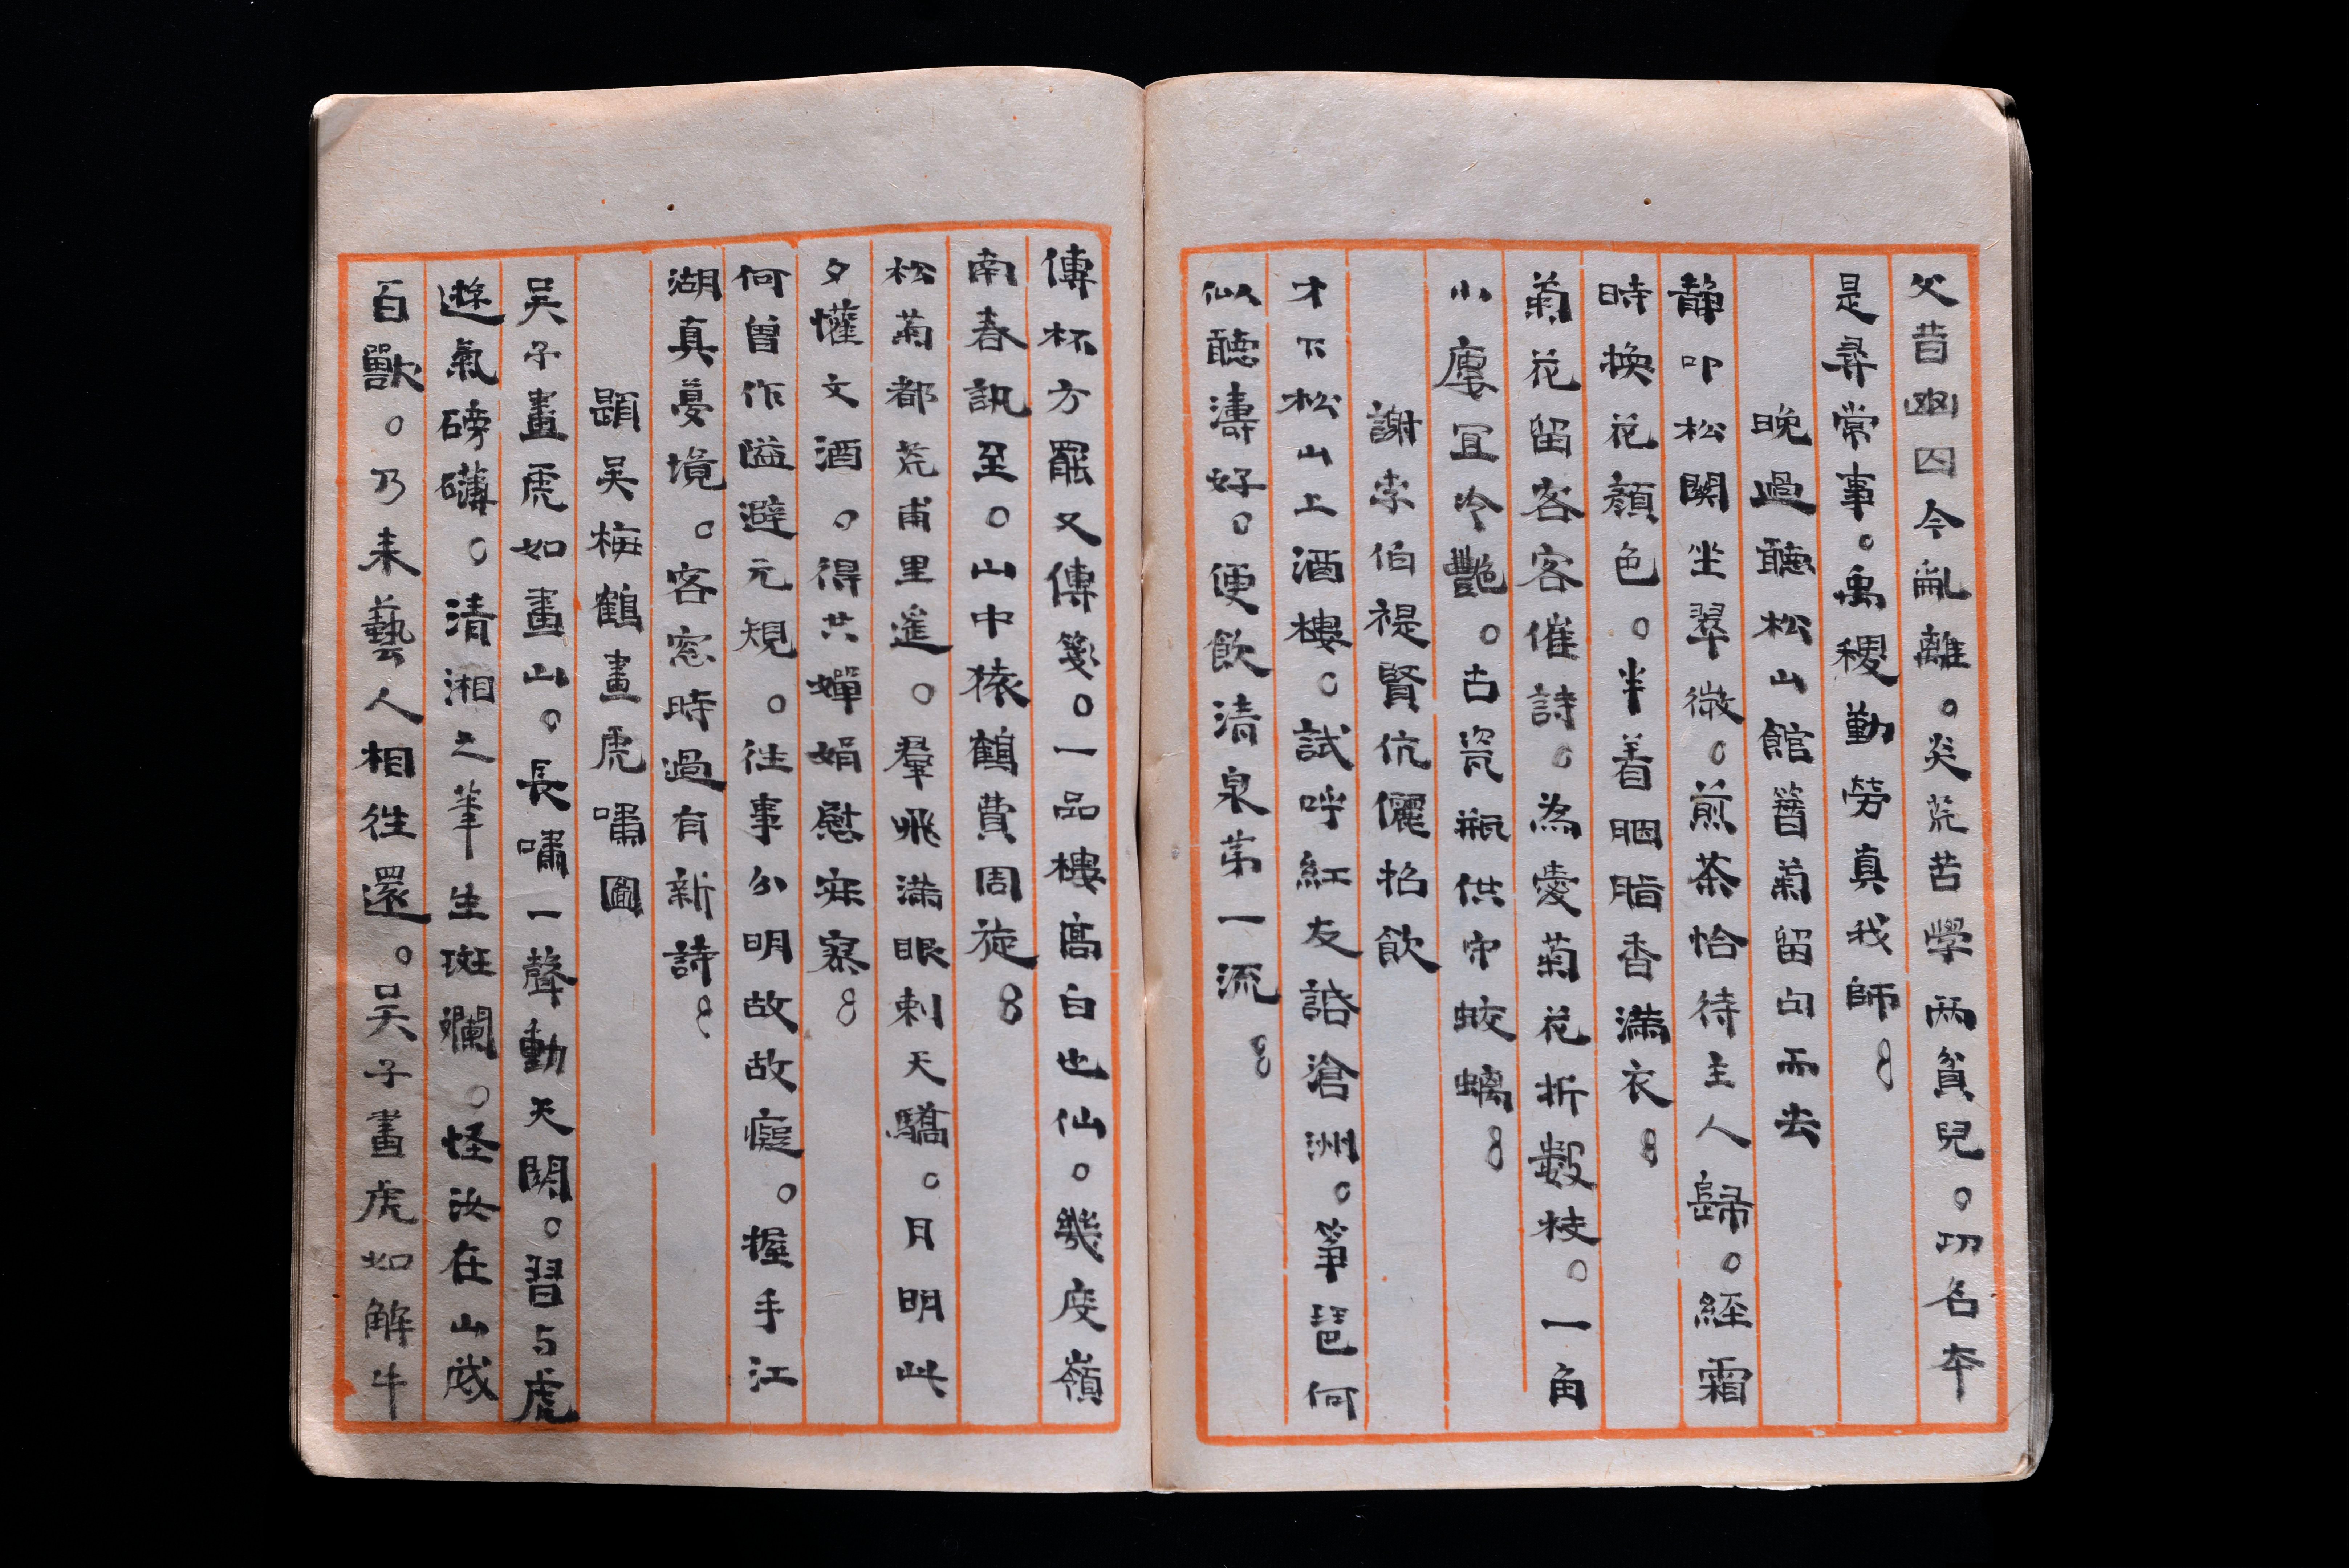 父昔幽囚今亂離。炎荒苦學兩貧兒。功名本
是尋常事。禹稷勤勞真我師8
晚過聽松山館簪菊留句而去
靜叩松關坐翠微。煎茶恰待主人歸。經霜
時換花顏色。半着胭脂香滿衣8
菊花留客客催詩。為愛菊花折數枝。一角
小廔宜冷艷。古瓷瓶供帀蛟螭8
謝李伯褆賢伉儷招飲
才下松山上酒樓。試呼紅友話滄洲。箏琶何
似聽濤好。便飲清泉苐一流8
傳杯方罷又傳箋。一品樓高白也仙。幾度嶺
南春訊至。山中猿鶴費周旋8
松菊都荒甫里遙。羣飛滿眼刺天驕。日明此
夕懽文酒。得共嬋娟慰寂寥8
何曾作隘避元規。往事分明故故癡。握手江
湖真夢境。客窓時過有新詩8
題吳梅鶴畫虎嘯圖
吴子畫虎如畫山。長嘯一聲動天関。習与虎
遊氣磅礴。清湘之筆生斑斕。怪汝在山威
百獸。乃来藝人相往還。吴子畫虎如解牛